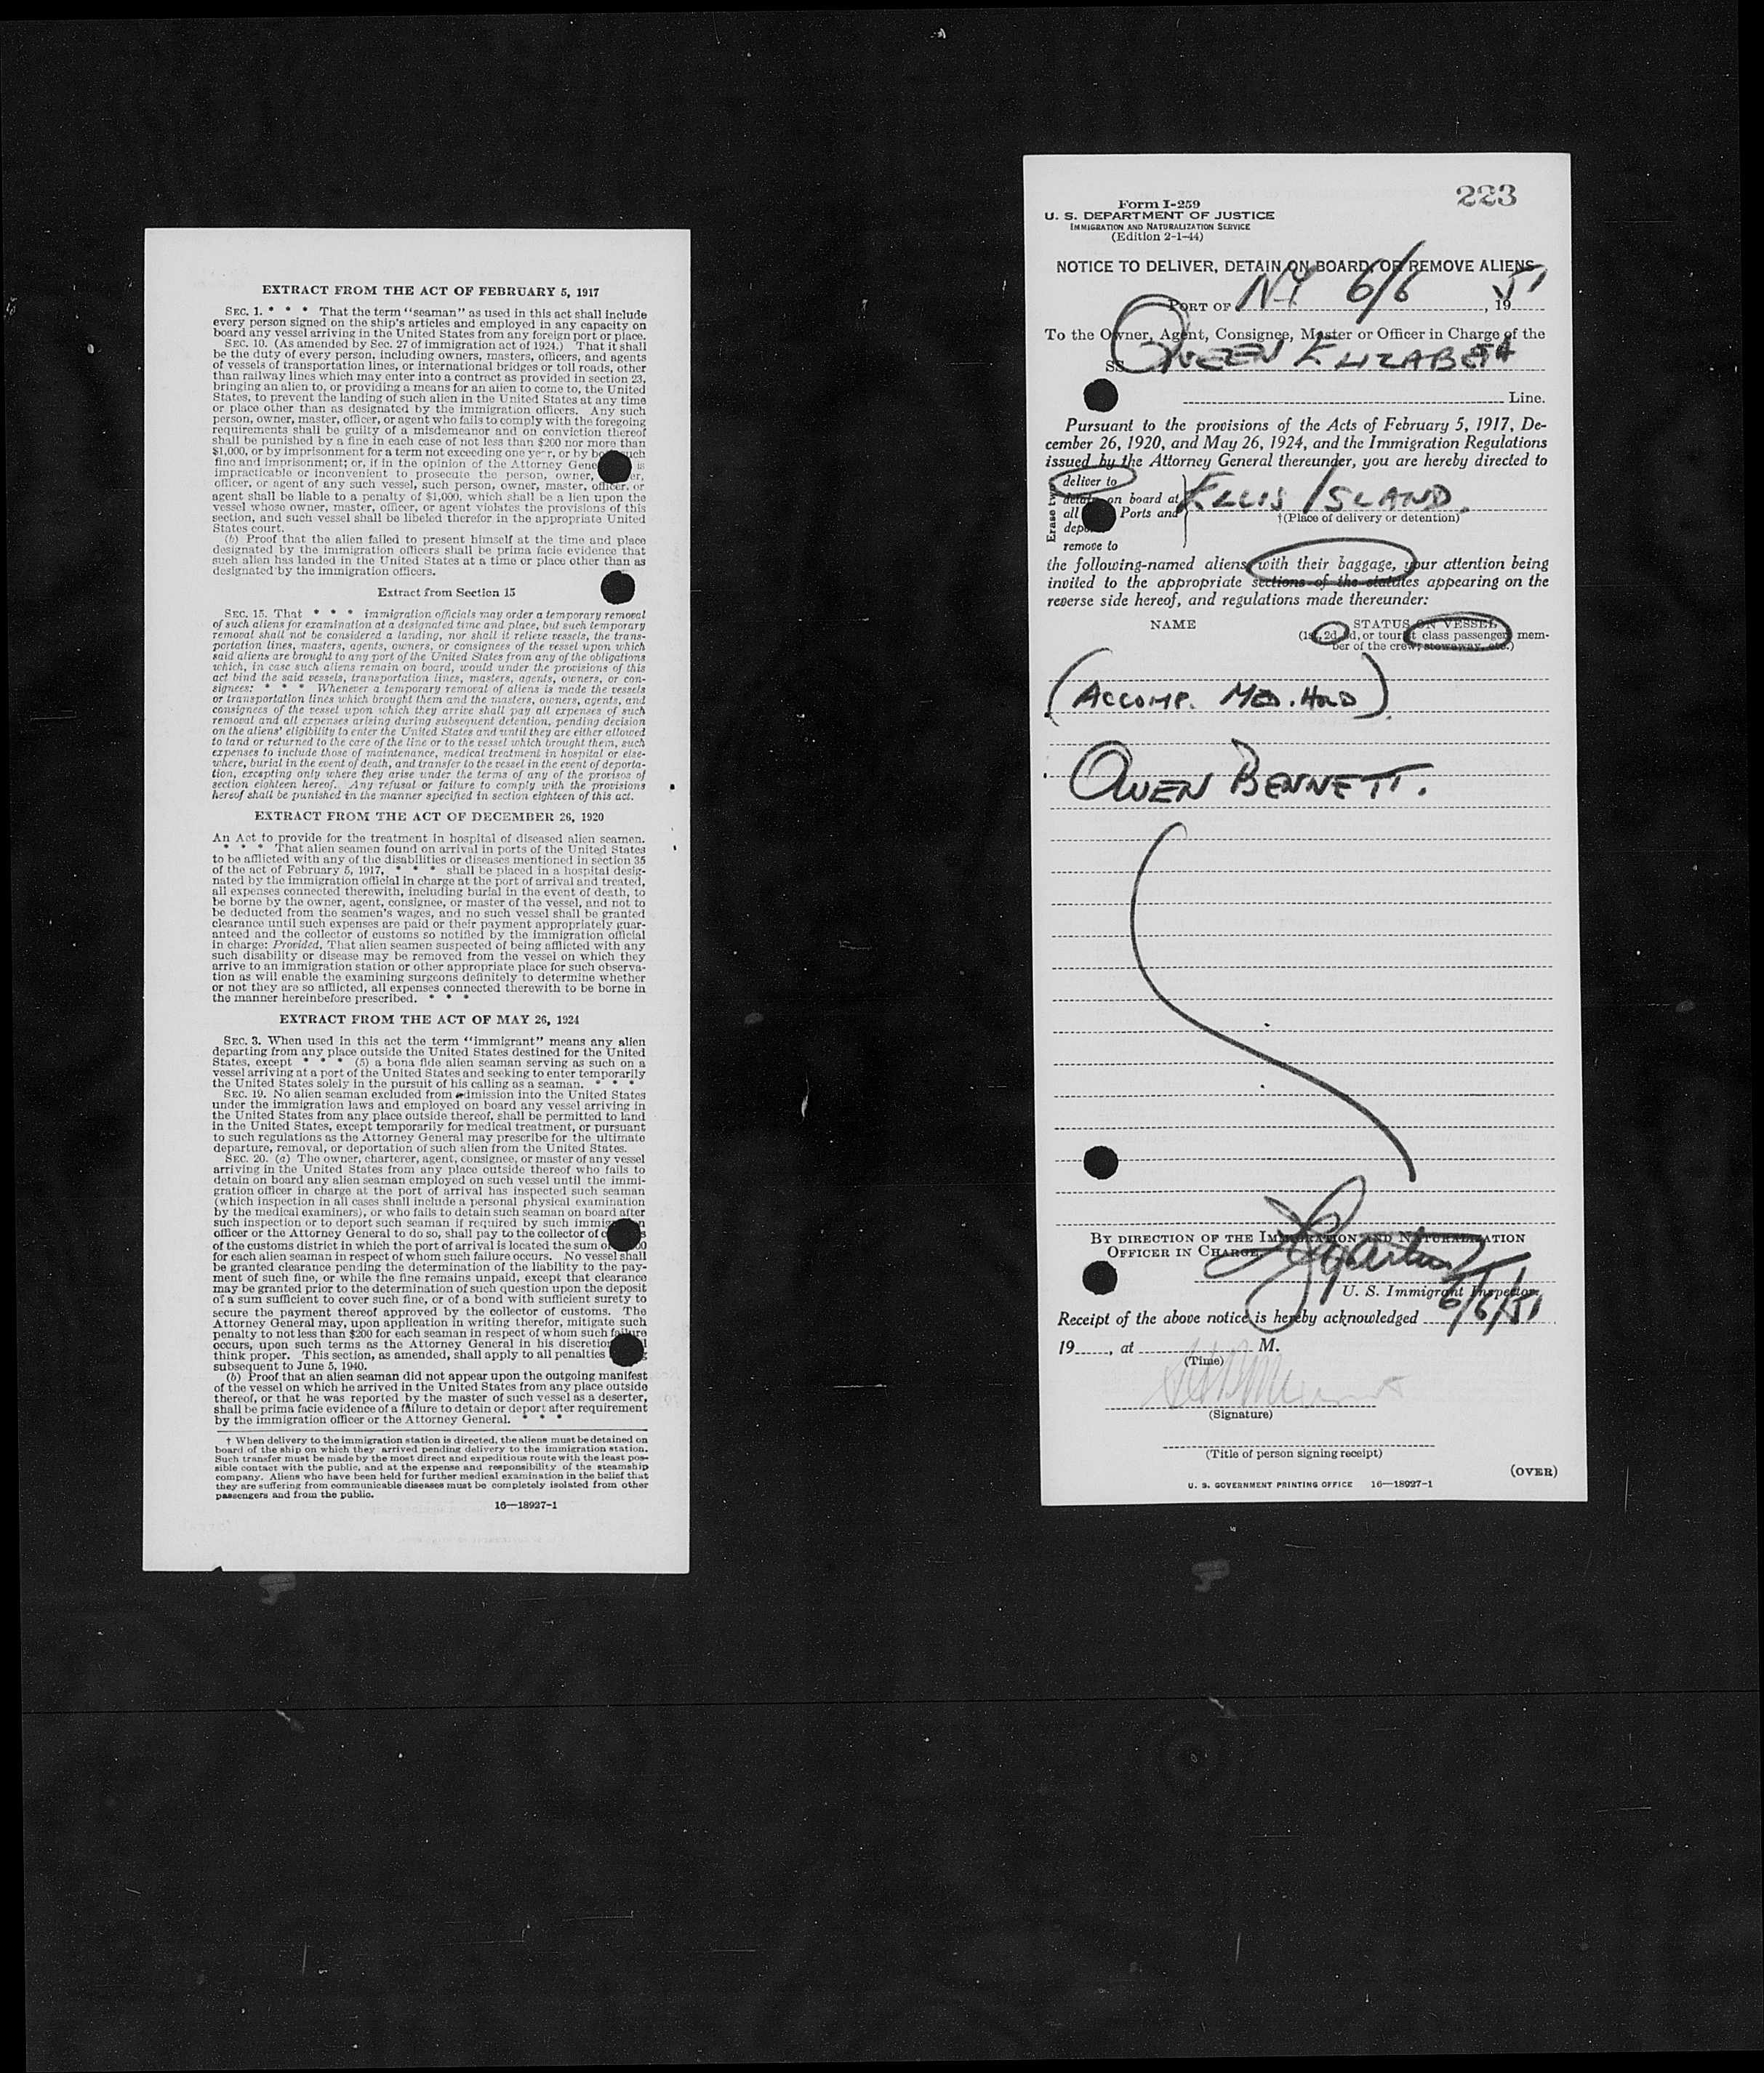 EXTRACT FROM THE ACT OF FEBRUARY 5, 1917
SEC. 1. * * * That the term "seaman" as used in this act shall include
every person signed on the ship's articles and employed in any capacity on
board any vessel arriving in the United States from any foreign port or place.
SEC. 10. (As amended by Sec. 27 of immigration act of 1924.) That it shall
be the duty of every person, including owners, masters, officers, and agents
of vessels of transportation lines, or international bridges or toll roads, other
than railway lines which may enter into a contract as provided in section 23,
bringing an alien to, or providing a means for an alien to come to, the United
States, to prevent the landing of such alien in the United States at any time
or place other than as designated by the immigration officers. Any such
person, owner, master, officer, or agent who fails to comply with the foregoing
requirements shall be guilty of a misdemeanor and on conviction thereof
shall be punished by a fine in each case of not less than $200 nor more than
$1,000, or by imprisonment for a term not exceeding one year, or by both such
fine and imprisonment; or, if in the opinion of the Attorney Gene is
impracticable or inconvenient to prosecute the person, owner, er,
officer, or agent of any such vessel, such person, owner, master, officer, or
agent shall be liable to a penalty of $1,000, which shall be a lien upon the
vessel whose owner, master, officer, or agent violates the provisions of this
section, and such vessel shall be libeled therefor in the appropriate United
States court.
(b) Proof that the alien failed to present himself at the time and place
designated by the immigration officers shall be prima facie evidence that
such alien has landed in the United States at a time or place other than as
designated by the immigration officers.
Extract from Section 15
SEC. 15. That * * * immigration officials may order a temporary removal
of such aliens for examination at a designated time and place, but such temporary
removal shall not be considered a landing, nor shall it relieve vessels, the trans-
portation lines, masters, agents, owners, or consignees of the vessel upon which
said aliens are brought to any port of the United States from any of the obligations
which, in case such aliens remain on board, would under the provisions of this
act bind the said vessels, transportation lines, masters, agents, owners, or con-
signees: * * * Whenever a temporary removal of aliens is made the vessels
or transportation lines which brought them and the masters, owners, agents, and
consignees of the vessel upon which they arrive shall pay all expenses of such
removal and all expenses arising during subsequent detention, pending decision
on the aliens' eligibility to enter the United States and until they are either allowed
to land or returned to the care of the line or to the vessel which brought them, such
expenses to include those of maintenance, medical treatment in hospital or else-
where, burial in the event of death, and transfer to the vessel in the event of deporta-
tion, excepting only where they arise under the terms of any of the provisos of
section eighteen hereof. Any refusal or failure to comply with the provisions
hereof shall be punished in the manner specified in section eighteen of this act.
EXTRACT FROM THE ACT OF DECEMBER 26, 1920
An Act to provide for the treatment in hospital of diseased alien seamen.
* * * That alien seamen found on arrival in ports of the United States
to be afflicted with any of the disabilities or diseases mentioned in section 35
of the act of February 5, 1917, * * * shall be placed in a hospital desig-
nated by the immigration official in charge at the port of arrival and treated,
all expenses connected therewith, including burial in the event of death, to
be borne by the owner, agent, consignee, or master of the vessel, and not to
be deducted from the seamen's wages, and no such vessel shall be granted
clearance until such expenses are paid or their payment appropriately guar-
anteed and the collector of customs so notified by the immigration official
in charge: Provided, That alien seamen suspected of being afflicted with any
such disability or disease may be removed from the vessel on which they
arrive to an immigration station or other appropriate place for such observa-
tion as will enable the examining surgeons definitely to determine whether
or not they are so afflicted, all expenses connected therewith to be borne in
the manner hereinbefore prescribed. * * *
EXTRACT FROM THE ACT OF MAY 26, 1924
SEC. 3. When used in this act the term "immigrant" means any alien
departing from any place outside the United States destined for the United
States, except * * * (5) a bona fide alien seaman serving as such on a
vessel arriving at a port of the United States and seeking to enter temporarily
the United States solely in the pursuit of his calling as a seaman. * * *
SEC. 19. No alien seaman excluded from admission into the United States
under the immigration laws and employed on board any vessel arriving in
the United States from any place outside thereof, shall be permitted to land
in the United States, except temporarily for medical treatment, or pursuant
to such regulations as the Attorney General may prescribe for the ultimate
departure, removal, or deportation of such alien from the United States.
SEC. 20. (a) The owner, charterer, agent, consignee, or master of any vessel
arriving in the United States from any place outside thereof who fails to
detain on board any alien seaman employed on such vessel until the immi-
gration officer in charge at the port of arrival has inspected such seaman
(which inspection in all cases shall include a personal physical examination
by the medical examiners), or who fails to detain such seaman on board after
such inspection or to deport such seaman if required by such immig n
officer or the Attorney General to do so, shall pay to the collector of c s
of the customs district in which the port of arrival is located the sum of 0
for each alien seaman in respect of whom such failure occurs. No vessel shall
be granted clearance pending the determination of the liability to the pay-
ment of such fine, or while the fine remains unpaid, except that clearance
may be granted prior to the determination of such question upon the deposit
of a sum sufficient to cover such fine, or of a bond with sufficient surety to
secure the payment thereof approved by the collector of customs. The
Attorney General may, upon application in writing therefor, mitigate such
penalty to not less than $200 for each seaman in respect of whom such failure
occurs, upon such terms as the Attorney General in his discretion l
think proper. This section, as amended, shall apply to all penalties
subsequent to June 5, 1940.
(b) Proof that an alien seaman did not appear upon the outgoing manifest
of the vessel on which he arrived in the United States from any place outside
thereof, or that he was reported by the master of such vessel as a deserter,
shall be prima facie evidence of a failure to detain or deport after requirement
by the immigration officer or the Attorney General. * * *
† When delivery to the immigration station is directed, the aliens must be detained on
board of the ship on which they arrived pending delivery to the immigration station.
Such transfer must be made by the most direct and expeditious route with the least pos-
sible contact with the public, and at the expense and responsibility of the steamship
company. Aliens who have been held for further medical examination in the belief that
they are suffering from communicable diseases must be completely isolated from other
passengers and from the public.
16—18927-1
223
Form I-259
U. S. DEPARTMENT OF JUSTICE
IMMIGRATION AND NATURALIZATION SERVICE
(Edition 2-1-44)
NOTICE TO DELIVER, DETAIN ON BOARD, OR REMOVE ALIENS
PORT OF NY 6/6, 1951
To the Owner, Agent, Consignee, Master or Officer in Charge of the
SS QUEEN ELIZABETH
Line.
Pursuant to the provisions of the Acts of February 5, 1917, De-
cember 26, 1920, and May 26, 1924, and the Immigration Regulations
issued by the Attorney General thereunder, you are hereby directed to
Erase two
deliver to
detain on board at
all Ports and
depo
remove to
ELLIS ISLAND.
†(Place of delivery or detention)
the following-named aliens with their baggage, your attention being
invited to the appropriate sections of the statutes appearing on the
reverse side hereof, and regulations made thereunder:
NAME
STATUS ON VESSEL
(1st, 2d, 3d, or tourist class passenger, mem-
ber of the crew, stowaway, etc.)
(ACCOMP. MED. HOLD)
OWEN BENNETT.
BY DIRECTION OF THE IMMIGRATION AND NATURALIZATION
OFFICER IN CHARGE
U. S. Immigrant Inspector.
Receipt of the above notice is hereby acknowledged 6/6/51
19, at M.
(Time)
(Signature)
(Title of person signing receipt)
(OVER)
U. S. GOVERNMENT PRINTING OFFICE 16—18927-1